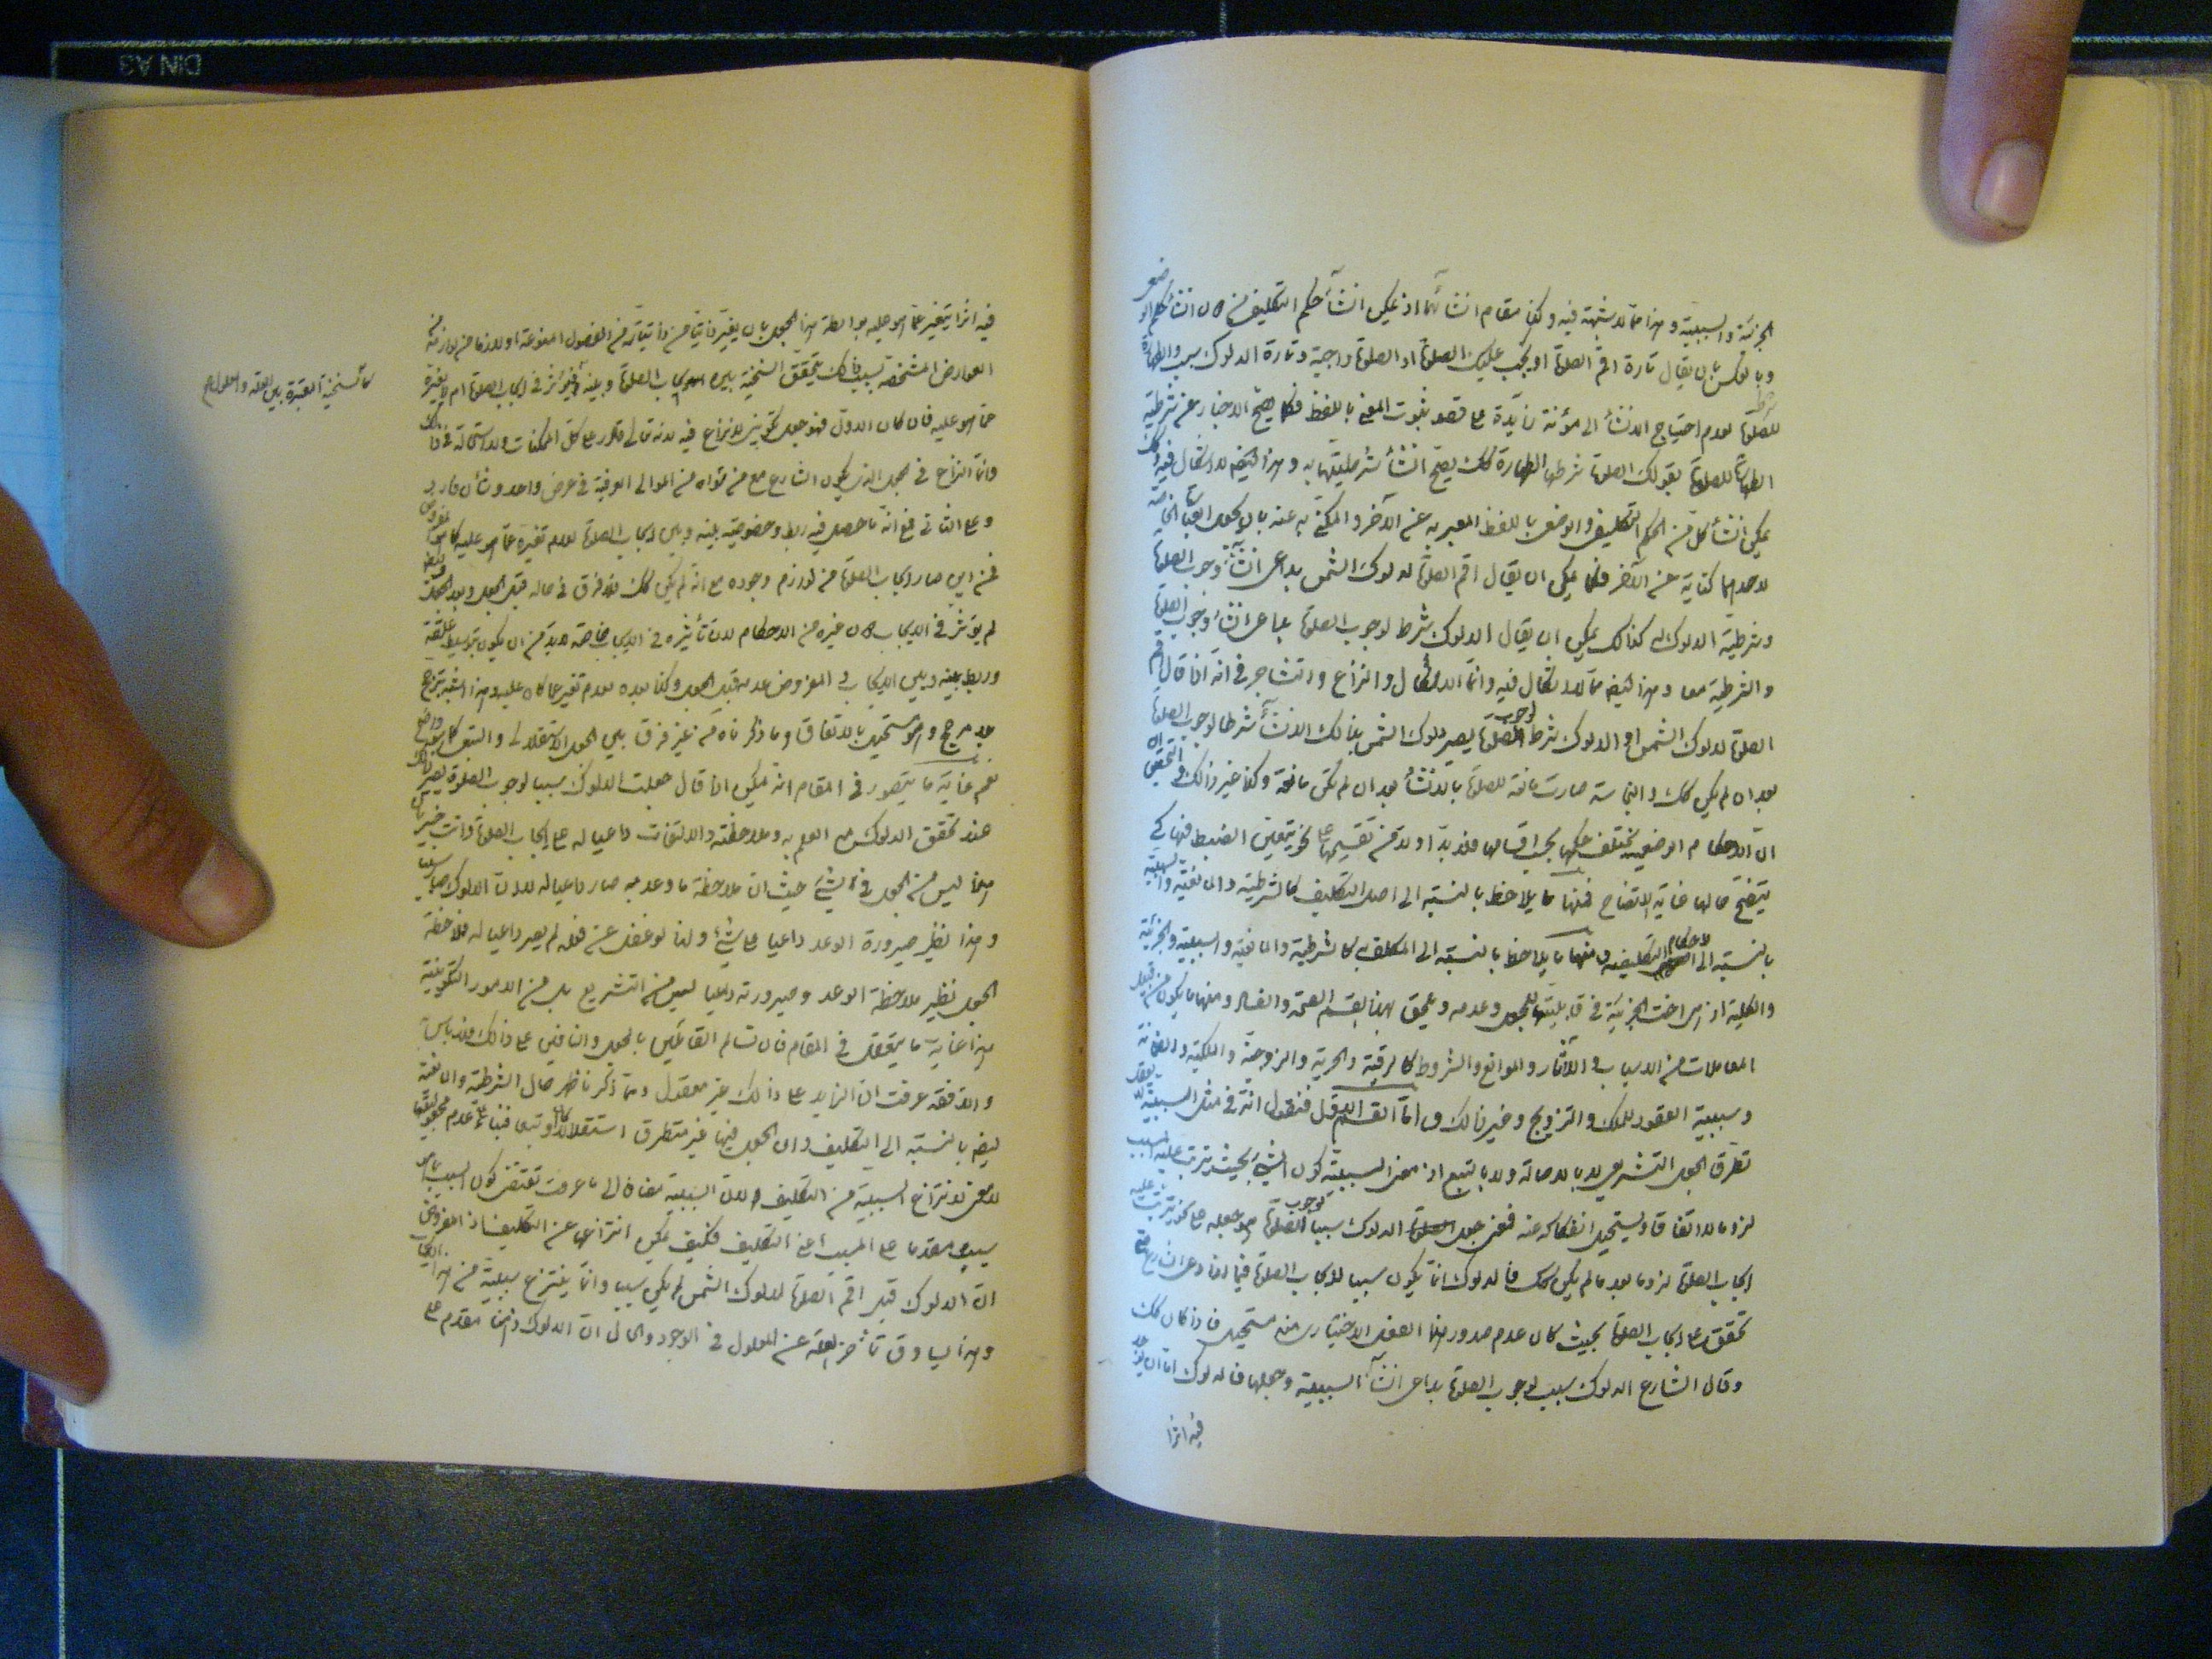 الجزئية والسببية وهذا مما لا شبهة فيه وكذا مقام انشائهما اذ يمكن انشاء حكم التكليف من دون انشاء حكم الوضع
وبالعكس بان يقال تارة اقم الصلوة او يجب عليك الصلوة او الصلوة واجبة وتارة الدلوك سبب والطهارة شرط
للصلوة لعدم احتياج الانشاء الى مؤنة زايدة على قصد ثبوت المعنى باللفظ فكما يصح الاخبار عن شرطية
الطهارة للصلوة بقولك الصلوة شرطها الطهارة كك يصح انشاء شرطيتها به وهذا ايضا لا اشكال فيه وكك
يمكن انشاء كل من الحكم التكليفى والوضعى باللفظ المعبر به عن الآخر والمكنى به عنه بان يجعل العبارة الخاصة
لاحدهما كناية عن الآخر فكما يمكن ان يقال اقم الصلوة لدلوك الشمس بداعى انشاء وجوب الصلوة
وشرطية الدلوك له كذلك يمكن ان يقال الدلوك شرط لوجوب الصلوة بداعى انشاء وجوب الصلوة
والشرطية معا وهذا ايضا مما لا اشكال فيه وانما الاشكال والنزاع والتشاجر فى انه اذا قال اقم
الصلوة لدلوك الشمس او الدلوك شرط لوجوب الصلوة يصير دلوك الشمس بذلك الانشاء شرطا لوجوب الصلوة
بعد ان لم يكن كك والنجاسة صارت مانعة للصلوة بالانشاء بعد ان لم تكن مانعة وكذا غير ذلك والتحقيق
ان الاحكام الوضعية يختلف حكمها بحسب اقسامها فلا بد اولا من تقسيمها على نحو يتعين الضبط فيها كى
يتضح حالها غاية الاتضاح فمنها ما يلاحظ بالنسبة الى اصل التكليف كالشرطية والمانعية والسببية
بالنسبة الى الاحكام التكليفية ومنها ما يلاحظ بالنسبة الى المكلف به كالشرطية والمانعية والسببية والجزئية
والكلية اذ هى اخت الجزئية فى قابليتها للجعل وعدمه ويلحق بهذا القسم الصحة والفساد ومنها ما يكون من قبيل
المعاملات من الاسباب والآثار والموانع والشروط كالرقية والحرية والزوجية والملكية والضمانة
وسببية العقود للملك والتزويج وغير ذلك اما القسم الاول فنقول انه فى مثل السببية لا يعقل
تطرق الجعل التشريعى لا بالاصالة ولا بالتبع اذ معنى السببية كون الشىء بحيث يترتب عليه المسبب
لزوما لا اتفاقا ويستحيل انفكاكه عنه فمعنى جعل الدلوك سببا لوجوب الصلوة هو جعله على نحو يترتب عليه
ايجاب الصلوة لزوما بعد ما لم يكن كك فالدلوك انما يكون سببا لايجاب الصلوة فيما اذا دعى الشارع
تحققه على ايجاب الصلوة بحيث كان عدم صدور هذا الفعل الاختيارى منه مستحيل فاذا كان كك
وقال الشارع الدلوك سبب لوجوب الصلوة بداعى انشاء السببية وجعلها فالدلوك اما ان يؤثر
فيه اثرا
فيه اثرا يتغير عما هو عليه بواسطة هذا الجعل بان يغير ذاتيا من ذاتياته من الفصول المنوعة او لازما من لوازمه من
العوارض المشخصة بسبب ذلك يتحقق السنخية بينه ايجاب الصلوة وبينه فيؤثر فى ايجاب الصلوة ام لا يغيره
عما هو عليه فان كان الاول فهو جعل تكوينى لا نزاع فيه لانه تعالى قادر على كل الممكنات ولا استحالة فى ذلك
وانما النزاع فى الجعل الذى يكون الشارع مع من سواه من الموالى العرفية فى عرض واحد وشأن فارد
وعلى الثانى فمع انه ما حصل فيه ربط وخصوصية بينه وبين ايجاب الصلوة لعدم تغيره عما هو عليه كما هو المفروض
فمن اين صار ايجاب الصلوة من لوازم وجوده مع انه لم يكن كك فلا فرق فى حاله قبل الجعل وبعد
لم يؤثر فى الايجاب دون غيره من الاحكام لان تأثيره فى الايجاب خاصة لابد من ان يكون بتوسيط علقة
وربط بينه وبين الايجاب والمفروض عدمه قبل الجعل وكذا بعده لعدم تغيره عما كان عليه وهذا ترجيح
بلا مرجح وهو مستحيل بالاتفاق وما ذكرناه من غير فرق بين الجعل الاستقلالى والتبعى كما هو واضح
نعم غاية ما يتصور فى المقام انه يمكن اذا قال جعلت الدلوك سببا لوجوب الصلوة يصير ذلك
عند تحقق الدلوك من العلم به وملاحظته والالتفات داعيا له على ايجاب الصلوة وانت خبير بان
هذا ليس من الجعل فى شىء حيث ان ملاحظة ما وعد به صار داعيا له لا ان الدلوك صار سبب
وهذا نظير صيرورة الوعد داعيا على شىء ولذا لو غفل عن فعله لم يصير داعيا له فلاحظة
الجعل نظير ملاحظة الوعد وصيرورته داعيا ليس من التشريع بل من الامور التكوينية
هذا غاية ما يتعقل فى المقام فان تسالم القائلين بالجعل والنافين على ذلك فلا بأس به
والا فقد عرفت ان الزايد على ذلك غير معقول ومما ذكرنا ظهر حال الشرطية والمانعية
ايضا بالنسبة الى التكليف وان الجعل فيها غير متطرق استقلالا او تبعا فبناء على عدم مجعوليتها
لا معنى لانتزاع السببية من التكليف لان السببية مضافا الى ما عرفت تقتضى كون السبب بما هو
سبب مقدما على المسبب اعنى التكليف فكيف يمكن انتزاعها عن التكليف اذ المفروض
ان الدلوك قبل اقم الصلوة لدلوك الشمس لم يكن سببا وانما ينتزع سببية من هذا الايجاب
وهذا يساوق تأخر العلة عن المعلول فى الوجود والحال ان الدلوك مقدم على
كالسنخية المعتبرة بين العلة والمعلول